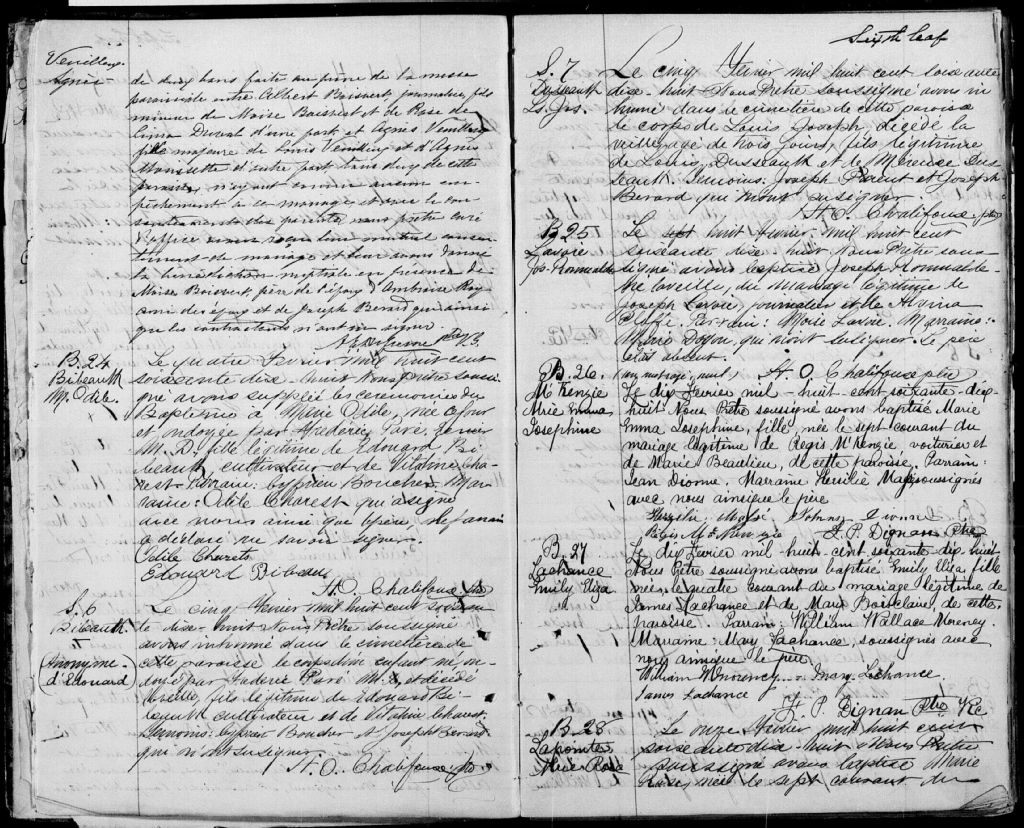 Agnès
de deux bans faite au prône de la messe
paroissiale entre Albert Boisvert journalier, fils
mineur de Moïse Boisvert et de Rose de
Lima Duval d'une part et Agnès
fille majeure de Louis et d'Agnès
Morissette d'autre part tous deux de cette
paroisse, n'ayant aucun em-
pêchement à ce mariage et avec le con-
sentement des parents, nous prêtre curé
avons reçu leur mutuel consen-
tement de mariage et leur avons donné
la bénédiction nuptiale en présence de
Moïse Boisvert, père de l'époux, d'Ambroise Roy
ami de l'époux et de Joseph Berard qui ainsi
que les contractants n'ont su signer.
B. 24
Bibeault
M. Odile.
Le quatre Fevrier mil huit cent
soixante dix-huit Nous Prêtre soussi-
gné avons suppléé les cérémonies du
Baptême à Marie Odile, née ce jour
et ondoyée par Frederic Paré,
M. D., fille légitime de Edouard Bi-
beault, cultivateur et de Vitaline Cha-
rest. Parrain: Cyprien Boucher, Mar-
raine: Odile Charest qui a signé
avec nous ainsi que le père, le parrain
a déclaré ne savoir signer.
Odile Charette
Edouard Bibeau
H. O. Chalifoux ptre
S. 6
Bibeault
Anonyme
d'Edouard
Le cinq Fevrier mil huit cent soixan-
te dix-huit Nous Prêtre soussigné
avons inhumé dans le cimetière de
cette paroisse le corps d'un enfant né, on-
doyé par Frederic Paré M. D. et décédé
la veille, fils légitime de Edouard Bi-
beault cultivateur et de Vitaline Charest.
Temoins: Cyprien Boucher et Joseph Berard
qui n'ont su signer.
H. O. Chalifoux ptre
Sixth leaf
S. 7
Dusseault
L. Jos.
Le cinq Fevrier mil huit cent soixante
dix-huit Nous Prêtre soussigné avons in-
humé dans le cimetière de cette paroisse
le corps de Louis Joseph, décédé la
veille, agé de trois jours, fils légitime
de Louis Dusseault et de Mereuse Dus-
seault. Temoins: Joseph Parent et Joseph
Berard qui n'ont su signer.
H. O. Chalifoux ptre
B 25
Lavoie
Jos. Romuald
Le sept huit fevrier mil huit cent
soixante dix-huit Nous Prêtre sous-
signé avons baptisé Joseph Romuald
né la veille, du mariage légitime de
Joseph Lavoie, journalier et de Alvina
Parrain: Moise Lavoie. Marraine:
Marie Doyon, qui n'ont su signer. Le père
était absent.
H. O. Chalifoux ptre
B. 26
McKenzie
Mrie Emma
Josephine
Le dix Fevrier mil-huit-cent-soixante-dix-
huit Nous Prêtre soussigné avons baptisé Marie
Emma Josephine, fille, née le sept courant du
mariage légitime de Regis McKenzie voiturier et
de Marie Beaulieu, de cette paroisse. Parrain:
Jean Dionne, Marraine soussignés
avec nous ainsi que le père
Regis McKenzie
F. P. Dignan Ptre
B. 27
Lachance
Emily Eliza
Le dix Fevrier mil-huit-cent soixante-dix-huit
Nous Prêtre soussigné avons baptisé Emily Eliza fille
née le quatre courant du mariage légitime de
James Lachance et de Mary Bonclaire, de cette
paroisse. Parrain: William Wallace Morency.
Marraine: Mary Lachance, soussignés avec
nous ainsi que le père
William Morency. Mary Lachance.
James Lachance
F. P. Dignan Ptre
B. 28
Lapointe
Mrie Rosa
Le onze Fevrier mil huit cent
soixante dix-huit Nous Prêtre
soussigné avons baptisé Marie
Rosa, née le sept courant du